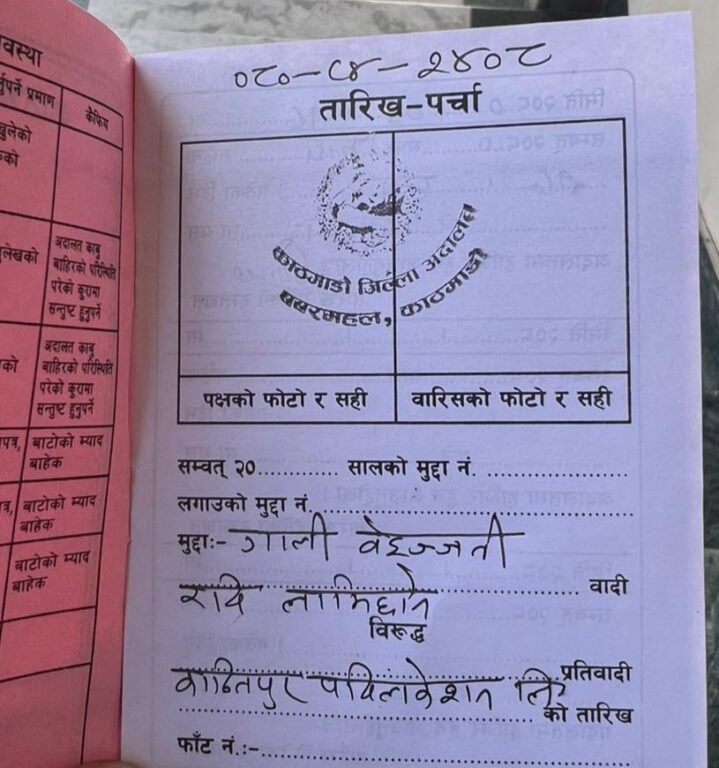 वस्था
र्नुपर्ने प्रमाण
कैफियत
खुलेको
को
लेखको
अदालत काबु
बाहिरको परिस्थिति
परेको कुरामा
सन्तुष्ट हुनुपर्ने
को
अदालत काबु
बाहिरको परिस्थिति
परेको कुरामा
सन्तुष्ट हुनुपर्ने
पत्र, बाटोको म्याद
बाहेक
त्र, बाटोको म्याद
बाहेक
बाटोको म्याद
बाहेक
०८०-८४-२४०८
तारिख-पर्चा
काठमाडौं जिल्ला अदालत
बबरमहल, काठमाडौं
पक्षको फोटो र सही
वारिसको फोटो र सही
सम्वत् २०............ सालको मुद्दा नं.
लगाउको मुद्दा नं.
मुद्दाः- गाली वेइज्जती
रवि लामिछाने वादी
विरूद्ध
कान्तिपुर पब्लिकेशन लि प्रतिवादी
को तारिख
फाँट नं.:-